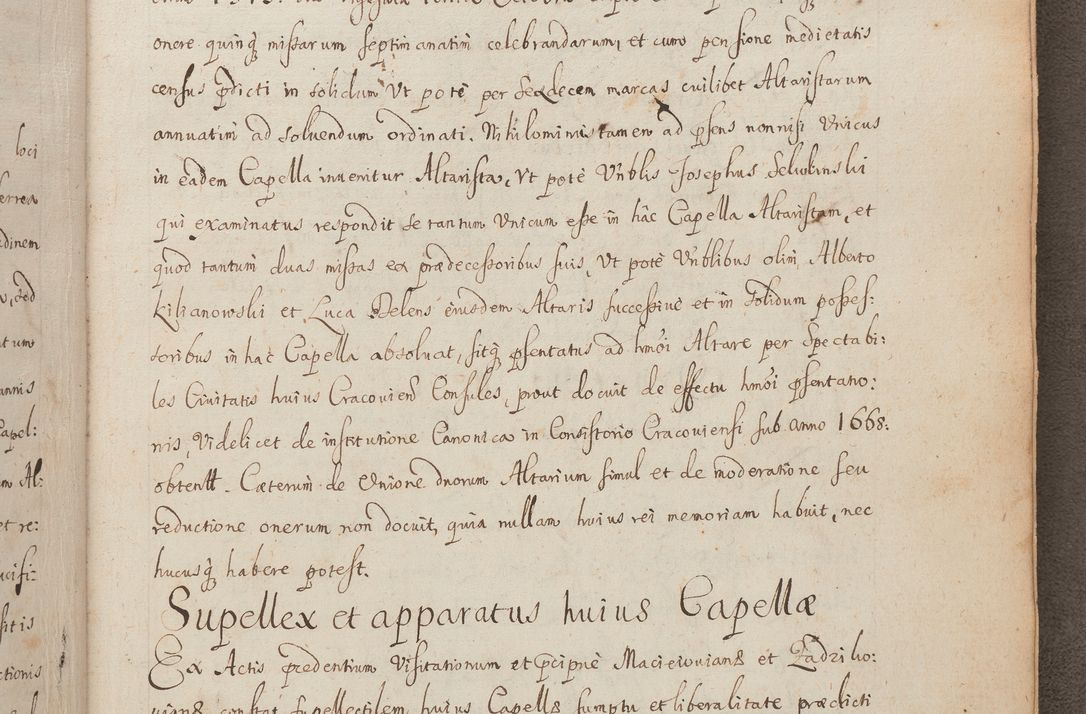 onere quinq̃ missarum septimanatim celebrandarum, et cum pensione medietatis
census p̃dicti in solidum Ut pote per sexdecem marcas cuilibet Altaristarum
annuatim ad solvendum ordinati. Nihilominus tamen ad p̃sens nonnisi Unicus
in eadem Capella invenitur Altarista, Ut potè Vñblis Josephus
qui examinatus respondit se tantum Unicum esse in hâc Capella Altaristam, et
quod tantum duas missas ex prædecessoribus suis, Ut potè Vñblibus olim Alberto
Kilianowski et Luca Belens eiusdem Altaris successivè et in solidum posses:
soribus in hac Capella absolvat, sitq̃ p̃sentatus ad hmõi Altare per Spectabi:
les Civitatis huius Cracovien̄ Consules, prout docuit de effectu hmõi p̃sentatio:
nis, Videlicet de institutione Canonica in Consistorio Cracoviensi sub anno 1668.
obtentt. Cæterum de Unione duorum Altarium simul et de moderatione seu
reductione onerum non docuit, quia nullam huius rei memoriam habuit, nec
hucusq̃ habere potest.
Supellex et apparatus huius Capellæ
Ex Actis præcedentium Visitationum et p̃cipuè Macieiovianæ et Zadziko:
vianæ constat supellectilem huius Capellæ sumptu et liberalitate prædicti
loci
dinem
annis
Capel:
Al:
et re:
ucifi:
sitis
ctionis